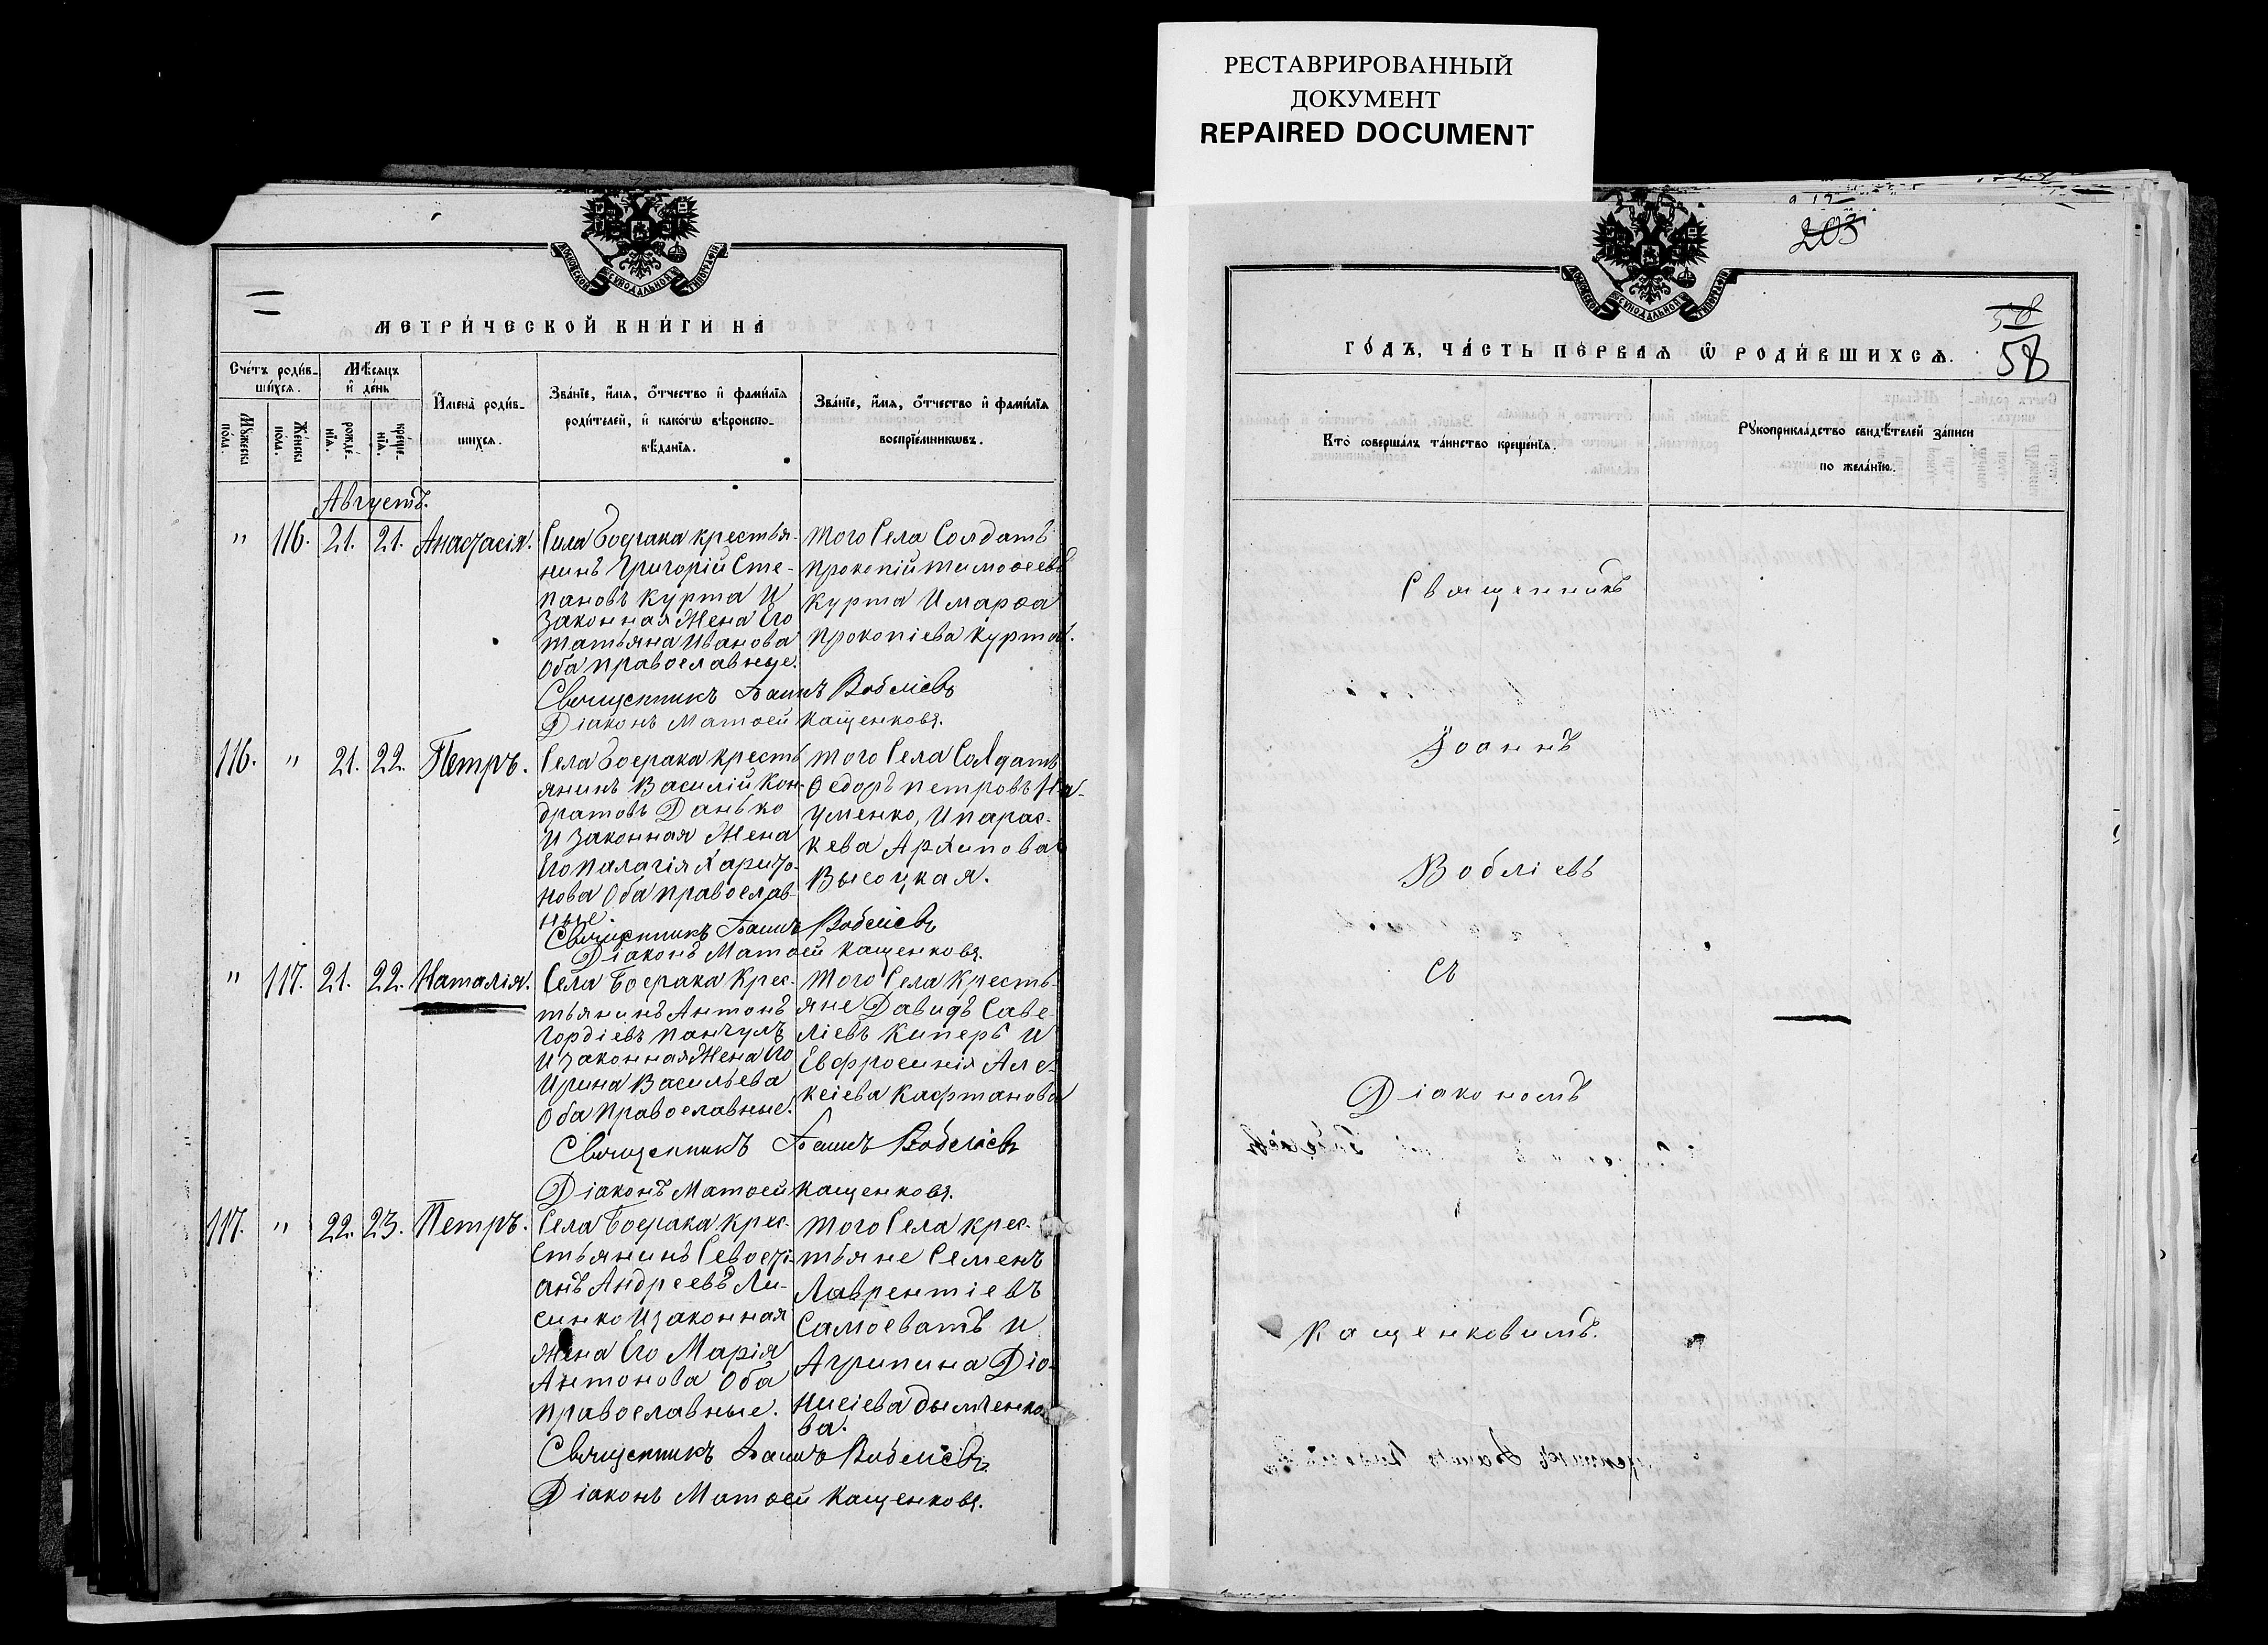 РЕСТАВРИРОВАННЫЙ
ДОКУМЕНТ
REPAIRED DOCUMENT
МОСКОВСКОЙ СѴНОДАЛЬНОЙ ТИПОГРАФІИ
МЕТРИ́ЧЕСКОЙ КНИ́ГИ НА
Сче́тъ роди́в-
ши́хсѧ.
Мѣ́сѧцъ
и҆ де́нь
И҆мена̀ роди́в-
шихсѧ.
Зва́нїе, и҆́мѧ, ѻ҆́тчество и҆ фами́лїѧ
роди́телей, и҆ како́гѡ вѣроиспо-
вѣ́данїѧ.
Зва́нїе, и҆́мѧ, ѻ҆́тчество и҆ фами́лїѧ
воспрїе́мникѡвъ.
Мꙋ́жеска
по́ла.
Же́нска
по́ла.
рожде́-
нїѧ.
креще́-
нїѧ.
Августъ.
" 116. 21. 21. Анастасія.
Села Боерака крестья-
нинъ Григорій Сте-
пановъ Курта И
Законная Жена Его
Татьяна Иванова
Оба православные.
Того Села Солдатъ
Прокопій Тимоѳеевъ
Курта И Марѳа
Прокопіева Курта.
Священникъ Іоаннъ Воблiевъ
Діаконъ Матѳей Кащенковъ.
116. " 21. 22. Петръ.
Села Боерака кресть
янинъ Василій Кон-
дратовъ Данько
И Законная Жена
Его Палагія Харито-
нова Оба православ-
ные.
Того Села Солдатъ
Ѳедоръ Петровъ На-
уменко, И Парас-
кева Архипова
Высоцкая.
Священникъ Іоаннъ Воблiевъ
Діаконъ Матѳей Кащенковъ.
" 117. 21. 22. Наталія.
Села Боерака Крес-
тьянинъ Антонъ
Гордіевъ Панчулъ
И Законная Жена Его
Ирина Васильева
Оба Православные.
Того Села Кресть-
яне Давидъ Саве-
ліевъ Киперь И
Евфросинія Але-
ксіева Кафтанова
Священникъ Іоаннъ Воблiевъ
Діаконъ Матѳей Кащенковъ.
117. " 22. 23. Петръ.
Села Боерака Крес-
стьянинъ Севостi-
анъ Андреевъ Ли-
синко И законная
Жена Его Марія
Антонова Оба
Православные.
Того Села крес-
тьяне Семенъ
Лаврентіевъ
Самосватъ И
Агрипина Діо-
нисіева Дымченко-
ва.
Священникъ Іоаннъ Воблiевъ
Діаконъ Матѳей Кащенковъ.
203
58
58
МОСКОВСКОЙ СѴНОДАЛЬНОЙ ТИПОГРАФІИ
ГО́ДЪ, ЧА́СТЬ ПЕ́РВАѦ Ѽ РОДИ́ВШИХСѦ.
Кто̀ соверша́лъ та́инство креще́нїѧ.
Рꙋкоприкла́дство свидѣ́телей за́писи
по жела́нїю.
Священникъ
Іоаннъ
Воблiевъ
съ
Діакономъ
Кащенковимъ.